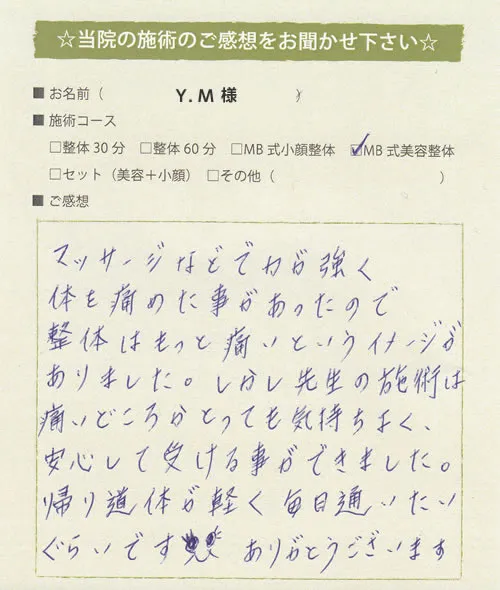 ☆当院の施術のご感想をお聞かせ下さい☆
■お名前( Y.M様 )
■施術コース
□整体30分 □整体60分 □MB式小顔整体 ☑MB式美容整体
□セット(美容+小顔) □その他( )
■ご感想
マッサージなどで力が強く
体を痛めた事があったので
整体はもっと痛いというイメージが
ありました。しかし先生の施術は
痛いどころかとっても気持ちよく、
安心して受ける事ができました。
帰り道体が軽く毎日通いたい
ぐらいです ありがとうございます